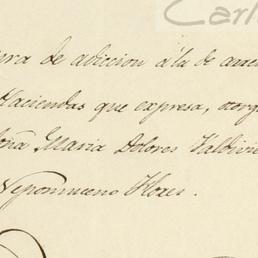 Carl
ura de adiccion á la de
Haciendas que expresa, otorg
Doña Maria Dolores Valdivi
Nepomuceno Flores.